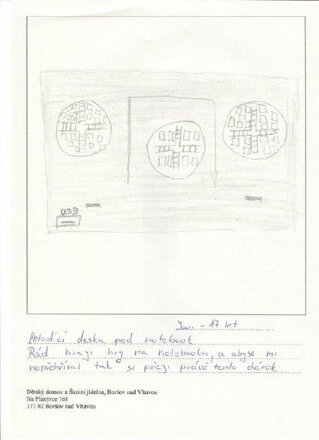 USB
Jan - 17 let
Chladící deska pod notebook
Rád hraji hry na notebooku, a abych mi
nepřehříval tak si přeji právě tento dárek
Dětský domov a Školní jídelna, Boršov nad Vltavou
Na Planýrce 168
373 82 Boršov nad Vltavou